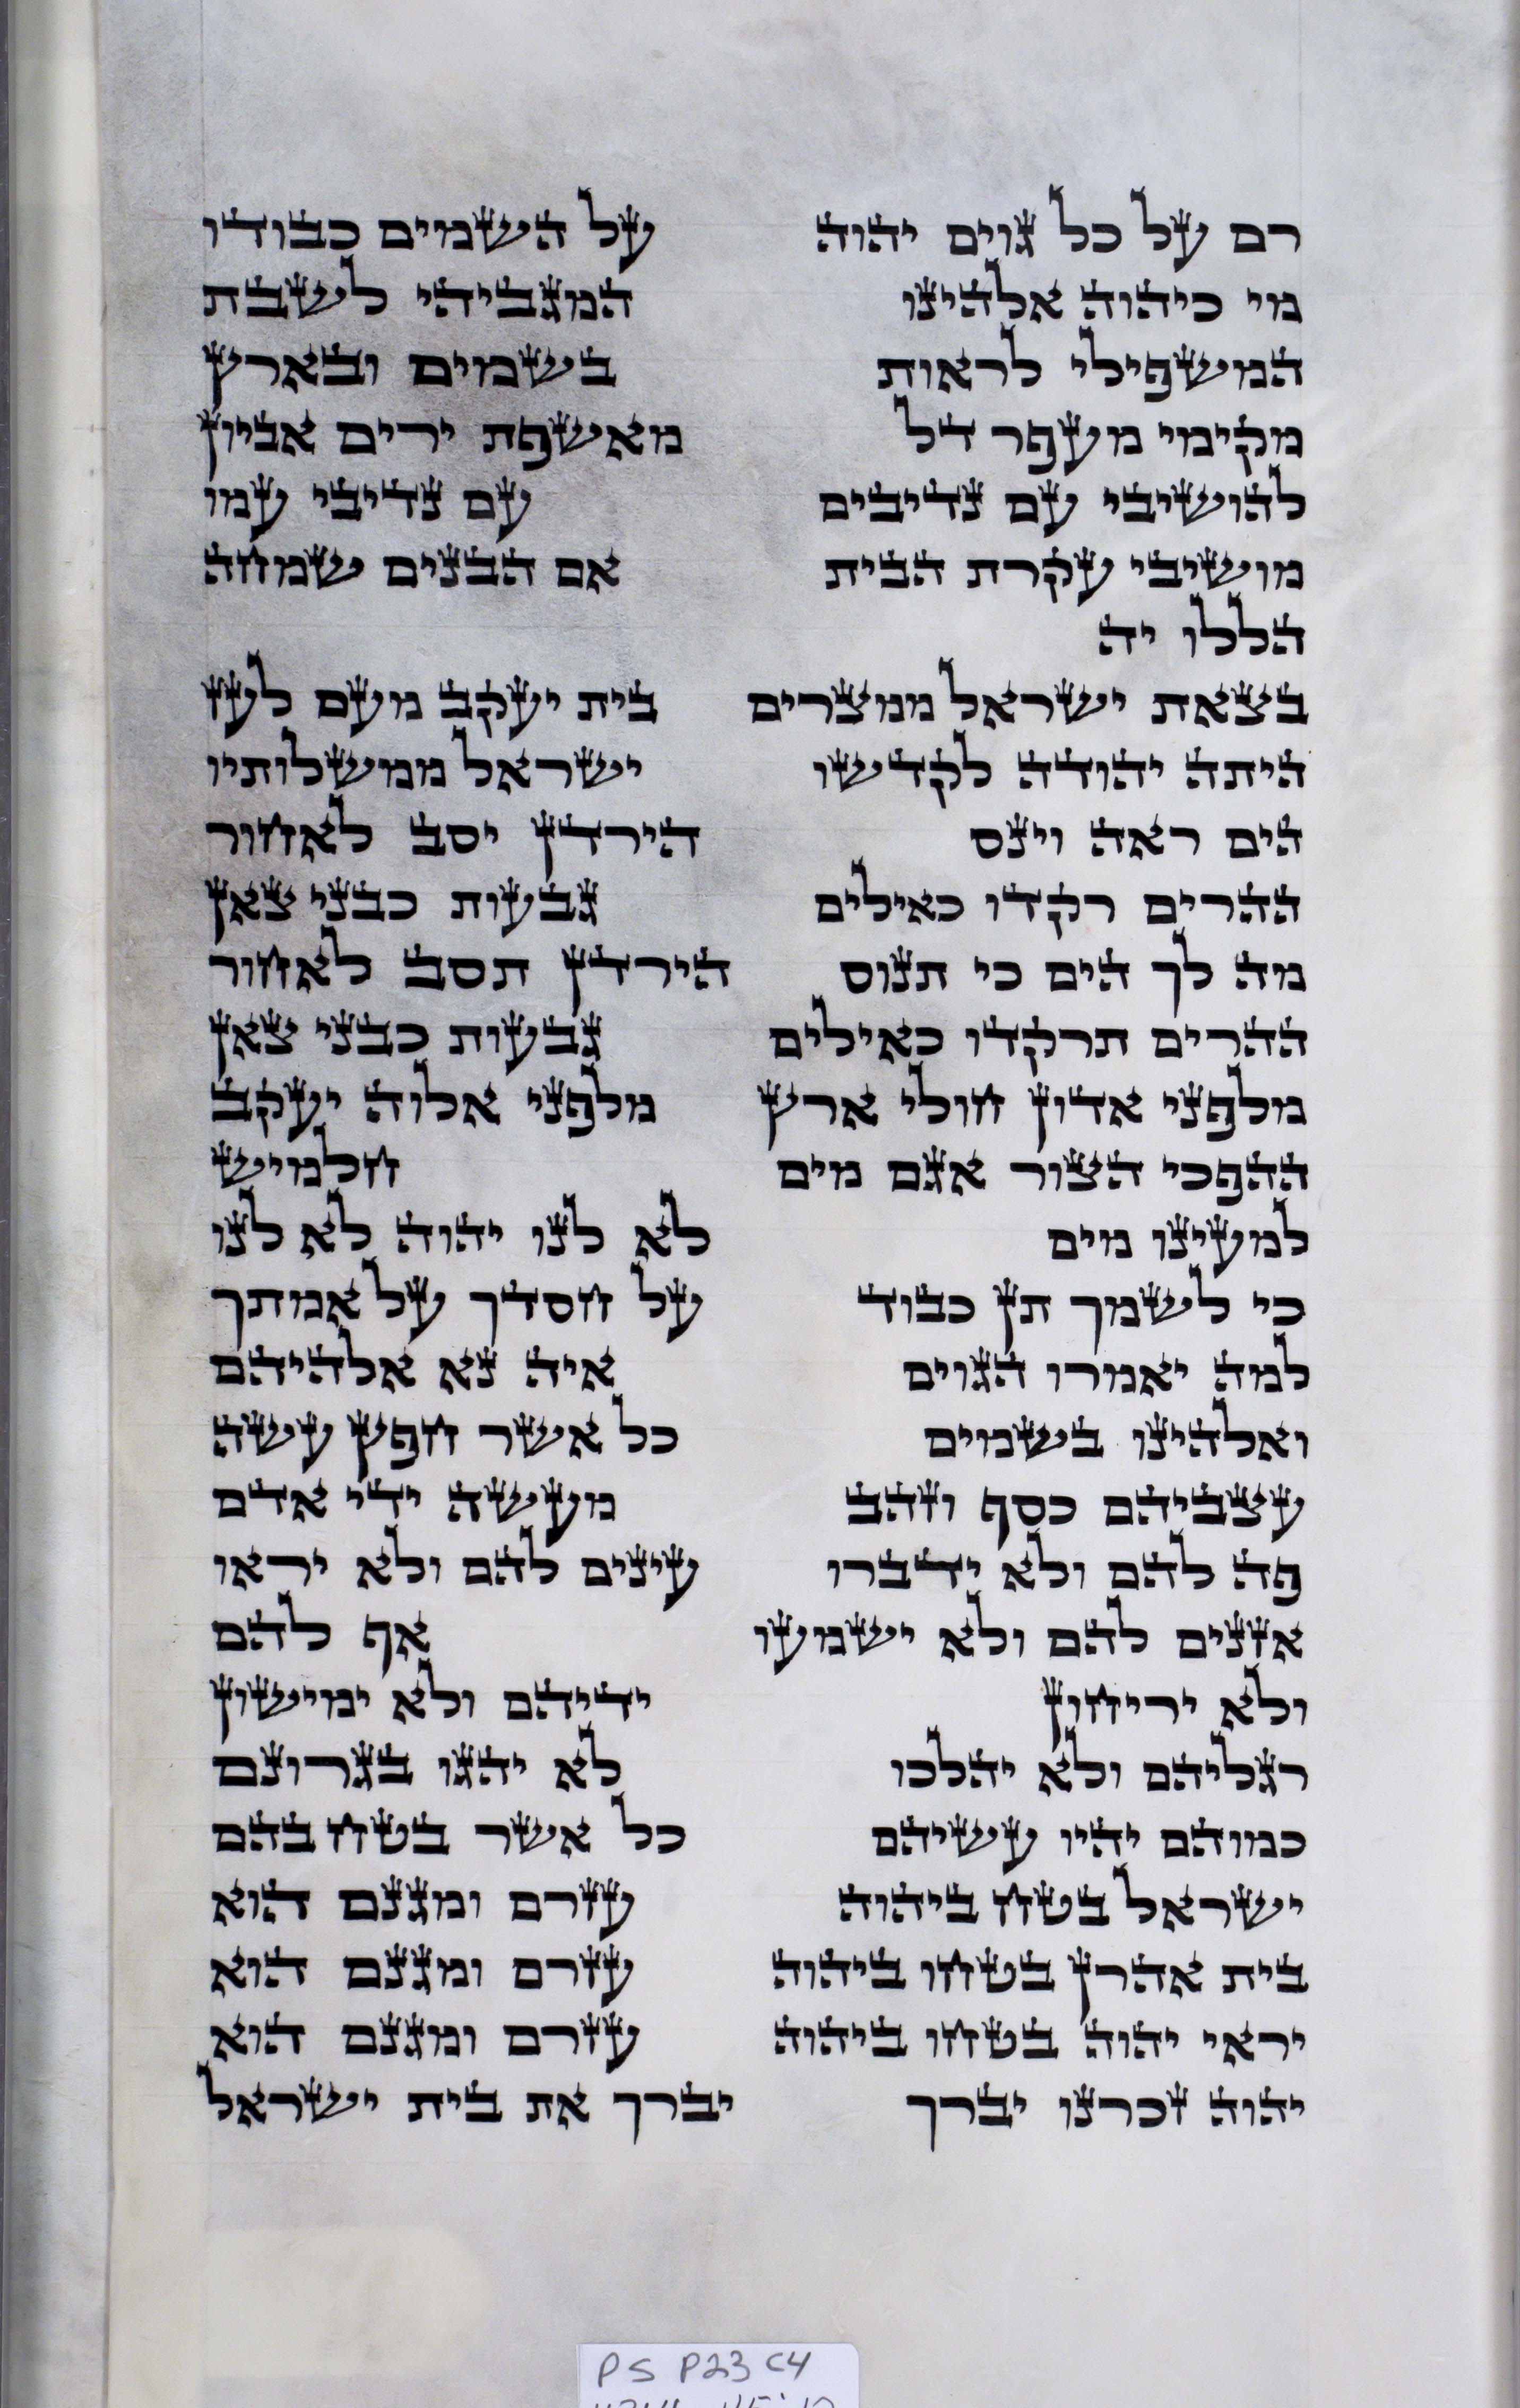 רם על כל גוים יהוה על השמים כבודו
מי כיהוה אלהינו המגביהי לשבת
המשפילי לראות בשמים ובארץ
מקימי מעפר דל מאשפת ירים אביון
להושיבי עם נדיבים עם נדיבי עמו
מושיבי עקרת הבית אם הבנים שמחה
הללו יה
בצאת ישראל ממצרים בית יעקב מעם לעז
היתה יהודה לקדשו ישראל ממשלותיו
הים ראה וינס הירדן יסב לאחור
ההרים רקדו כאילים גבעות כבני צאן
מה לך הים כי תנוס הירדן תסב לאחור
ההרים תרקדו כאילים גבעות כבני צאן
מלפני אדון חולי ארץ מלפני אלוה יעקב
ההפכי הצור אגם מים חלמיש
למעינו מים לא לנו יהוה לא לנו
כי לשמך תן כבוד על חסדך על אמתך
למה יאמרו הגוים איה נא אלהיהם
ואלהינו בשמים כל אשר חפץ עשה
עצביהם כסף וזהב מעשה ידי אדם
פה להם ולא ידברו עינים להם ולא יראו
אזנים להם ולא ישמעו אף להם
ולא יריחון ידיהם ולא ימישון
רגליהם ולא יהלכו לא יהגו בגרונם
כמוהם יהיו עשיהם כל אשר בטח בהם
ישראל בטח ביהוה עזרם ומגנם הוא
בית אהרן בטחו ביהוה עזרם ומגנם הוא
יראי יהוה בטחו ביהוה עזרם ומגנם הוא
יהוה זכרנו יברך יברך את בית ישראל
PS P23 C4